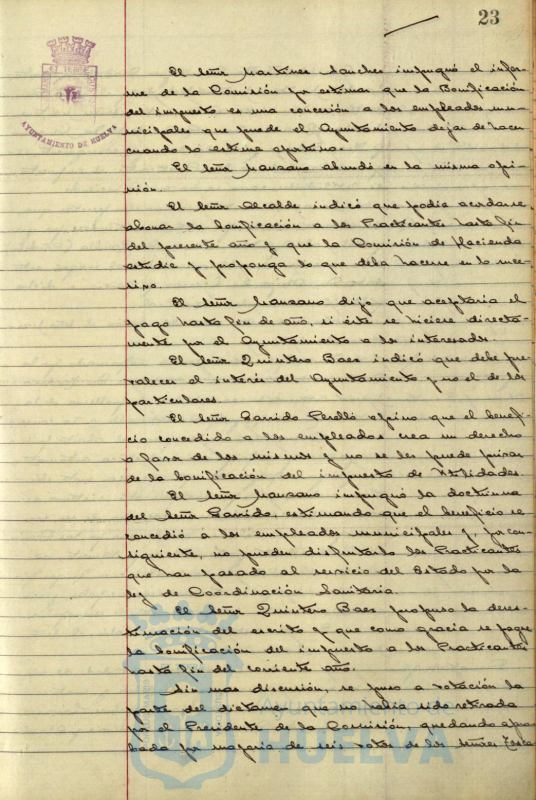 23
AYUNTAMIENTO DE HUELVA
El Señor Martinez Sanchez impugnó el infor-
me de la Comisión por estimar que la Bonificación
del impuesto es una concesión a los empleados mu-
nicipales que puede el Ayuntamiento dejar de hacer
cuando lo estime oportuno.
El Señor Manzano abundó en la misma opi-
nión.
El Señor Alcalde indicó que podia acordarse
abonar la bonificación a los Practicantes hasta fin
del presente año y que la Comisión de Hacienda
estudie y proponga lo que deba hacerse en lo suce-
sivo.
El Señor Manzano dijo que aceptaria el
pago hasta fin de año, si éste se hiciese directa-
mente por el Ayuntamiento a los interesados.
El Señor Quintero Baez indicó que debe pre-
valecer el interés del Ayuntamiento y no el de los
particulares.
El Señor Garrido Perelló opino que el benefi-
cio concedido a los empleados crea un derecho
a favor de los mismos y no se les puede privar
de la bonificación del impuesto de Utilidades.
El Señor Manzano impugnó la doctrina
del Señor Garrido, estimando que el beneficio se
concedió a los empleados municipales y, por con-
siguiente, no pueden disfrutarlo los Practicantes
que han pasado al servicio del Estado por la
ley de Coordinación Sanitaria.
El Señor Quintero Baez propuso la deses-
timación del escrito y que como gracia se pague
la bonificación del impuesto a los Practicantes
hasta fin del corriente año.
Sin mas discusión, se puso a votación la
parte del dictamen que no habia sido retirada
por el Presidente de la Comisión, quedando apro-
bada por mayoria de seis votos de los Señores
Ayuntamiento
HUELVA